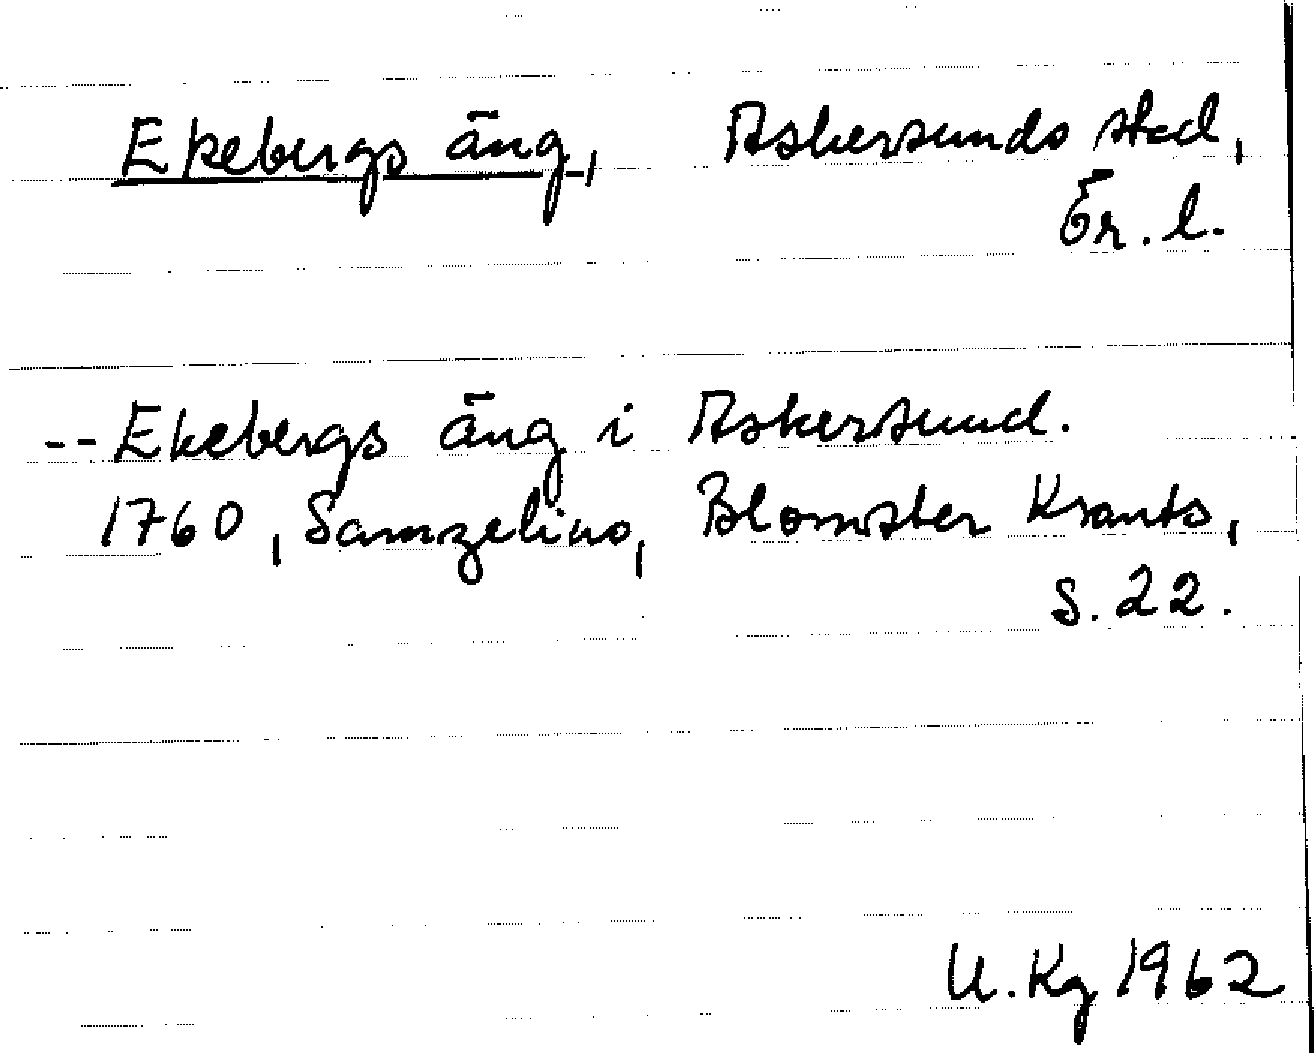 Ekebergs äng, Askersunds stad,
Ör. l.
-- Ekebergs äng i Askersund.
1760, Samzelius, Blomster Krants,
s. 22.
U. Kg 1962